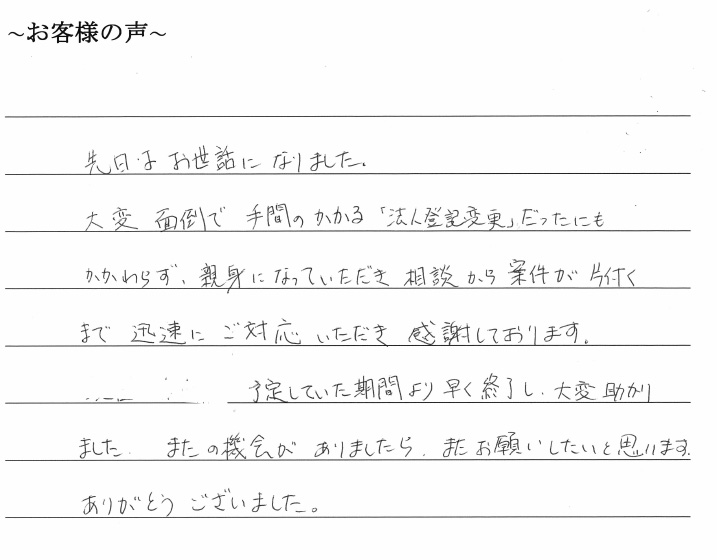 ~お客様の声~
先日はお世話になりました。
大変面倒で手間のかかる「法人登記変更」だったにも
かかわらず、親身になっていただき相談から案件が片付く
まで迅速にご対応いただき感謝しております。
予定していた期間より早く終了し、大変助かり
ました。またの機会がありましたら、またお願いしたいと思います。
ありがとうございました。